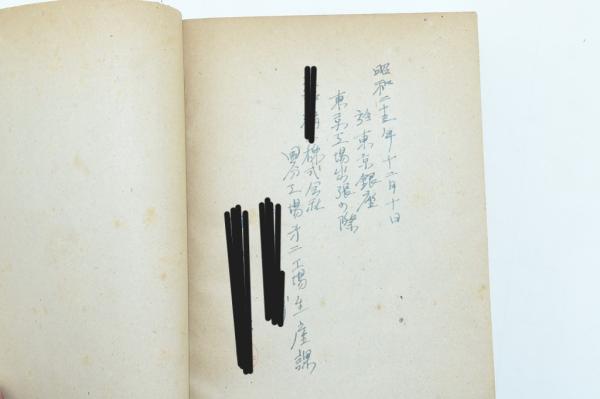 昭和二十五年十二月十日
於東京銀座
東京工場出張の際
株式会社
国分工場才二工場生産課